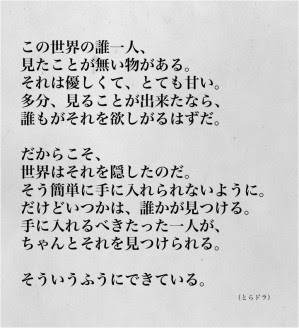 この世界の誰一人、
見たことが無い物がある。
それは優しくて、とても甘い。
多分、見ることが出来たなら、
誰もがそれを欲しがるはずだ。
だからこそ、
世界はそれを隠したのだ。
そう簡単に手に入れられないように。
だけどいつかは、誰かが見つける。
手に入れるべきたった一人が、
ちゃんとそれを見つけられる。
そういうふうにできている。
（とらドラ）